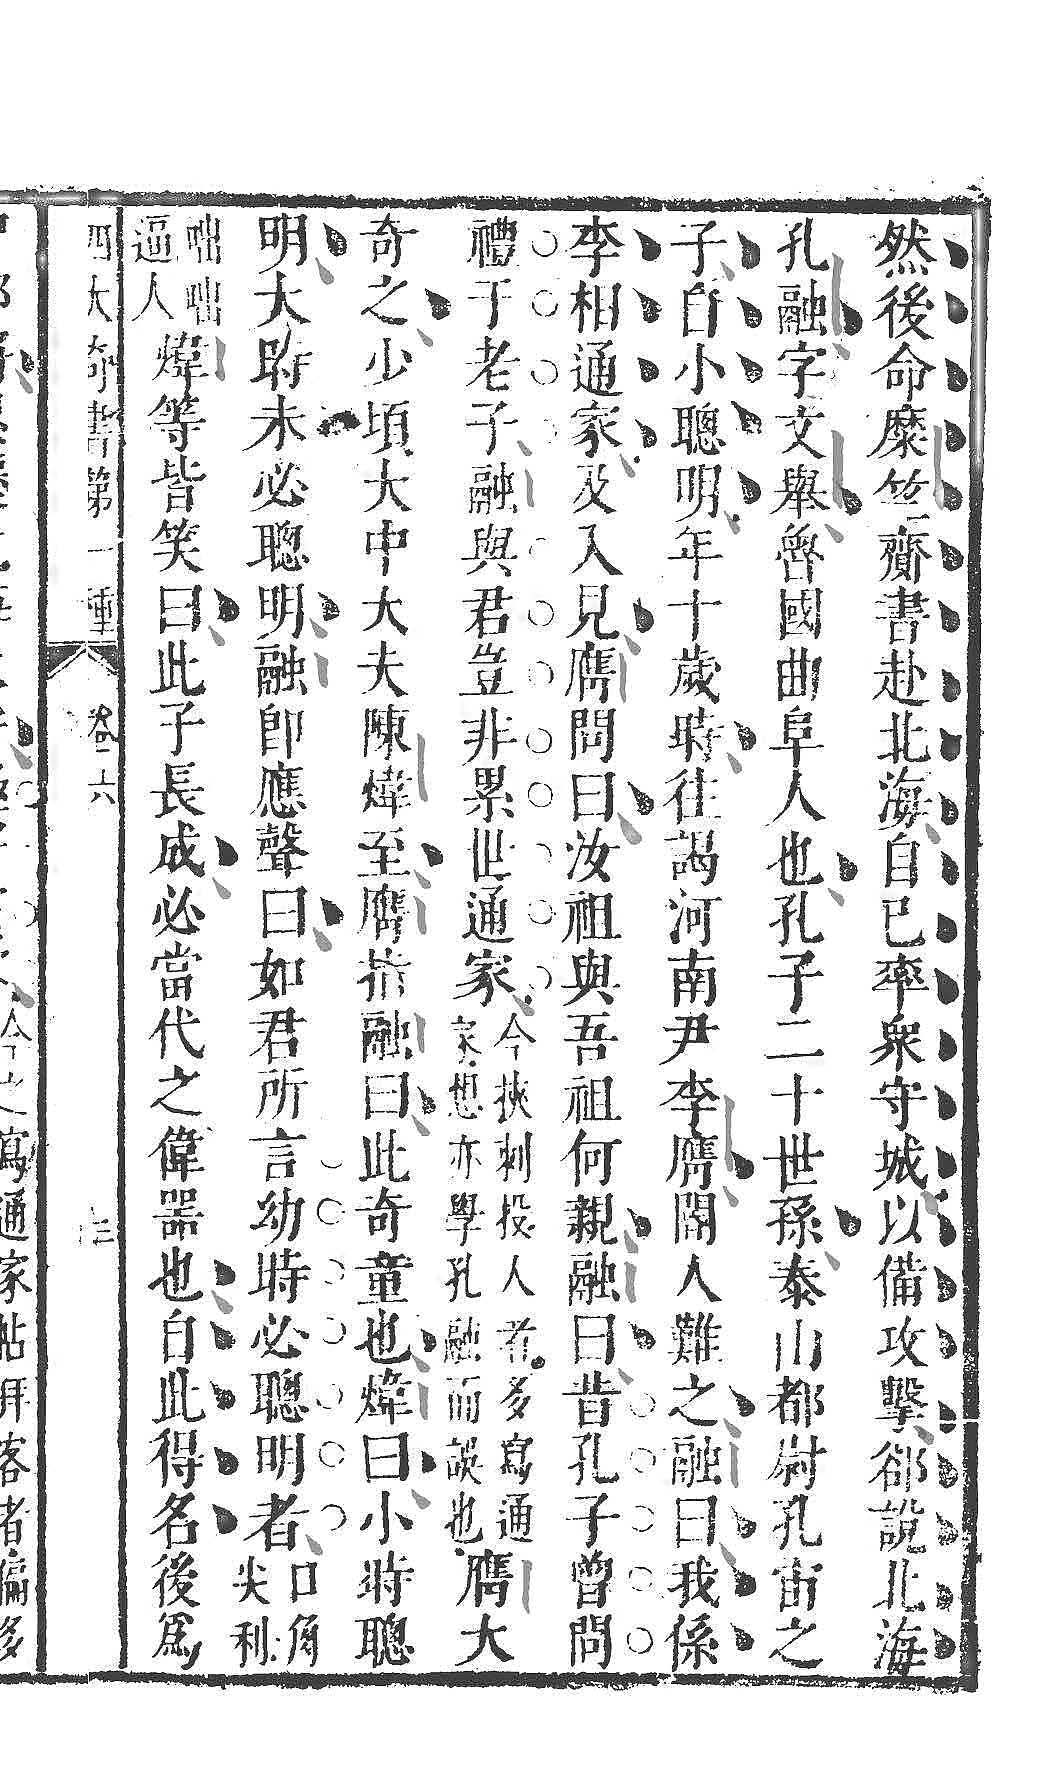 然後命糜竺齎書赴北海自己率衆守城以備攻擊却說北海
孔融字文舉魯國曲阜人也孔子二十世孫泰山都尉孔宙之
子自小聰明年十歲時往謁河南尹李膺閽人難之融曰我係
李相通家及入見膺問曰汝祖與吾祖何親融曰昔孔子曾問
禮于老子融與君豈非累世通家今挾刺投人者多寫通家想亦學孔融而誤也膺大
奇之少頃大中大夫陳煒至膺指融曰此奇童也煒曰小時聰
明大時未必聰明融即應聲曰如君所言幼時必聰明者口角尖利
咄咄逼人煒等皆笑曰此子長成必當代之偉器也自此得名後爲
四大奇書第一種 卷六
今之寫通家帖拜客者偏多